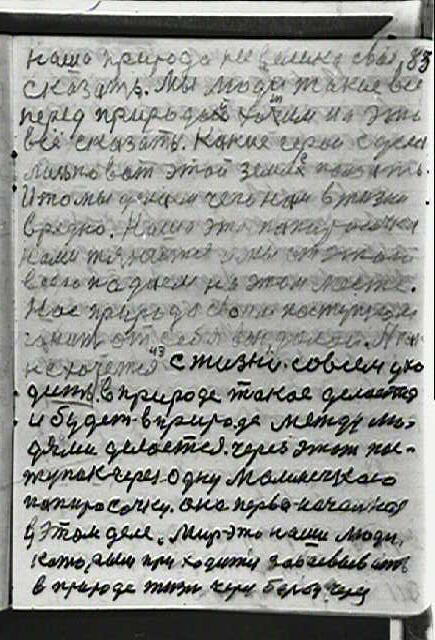 наша природа не велика свая, 83
сказать. Мы люди такие все
перед природай хотим на это
всё сказать. Какие герои сдела
лись вот этой земле показать.
И то мы думаем чего нам в жизни
вредно. Наша это папиросочка
нами
всего падаем на этом месте.
Нас природа за поступки
гонит от себя
не хочется из жизни. совсем ухо
дить, в природе такое делается
и будет в природе между лю-
дями делается. через этот по-
ступок через одну маленькаю
папиросочку. она перво-начальная
в этом деле. Мир это наши люди,
каторыи приходится забаевывать
в природе жизнь через